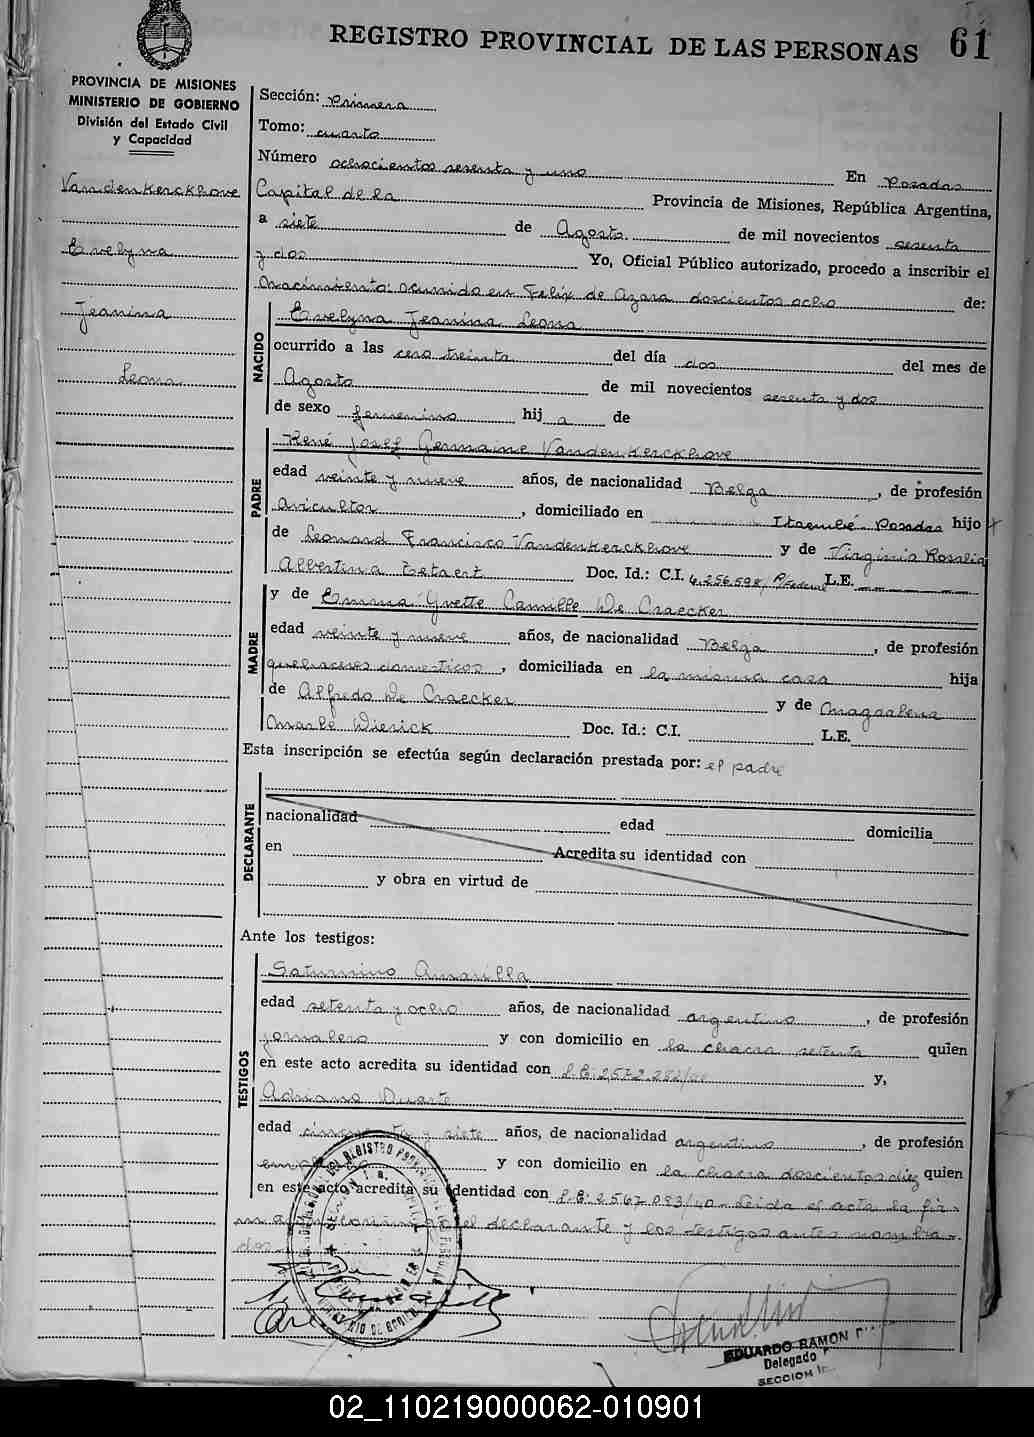 REGISTRO PROVINCIAL DE LAS PERSONAS 61
PROVINCIA DE MISIONES
MINISTERIO DE GOBIERNO
División del Estado Civil
y Capacidad
Vandenkerckhove
Evelyna
Jeanina
Leona
Sección: Primera
Tomo: cuarto
Número ochocientos sesenta y uno En Posadas
Capital de la Provincia de Misiones, República Argentina,
a siete de Agosto de mil novecientos sesenta
y dos Yo, Oficial Público autorizado, procedo a inscribir el
Nacimiento: ocurrido en Felix de Azara doscientos ocho de:
NACIDO
Evelyna Jeanina Leona
ocurrido a las cero treinta del día dos del mes de
Agosto de mil novecientos sesenta y dos
de sexo femenino hij a de
PADRE
René Josef Germaine Vandenkerckhove
edad veinte y nueve años, de nacionalidad Belga, de profesión
avicultor, domiciliado en Itaembé Posadas hijo
de Leonard Francisco Vandenkerckhove y de Virginia Rosalia
Albertina Doc. Id.: C.I. 4.256.598, P/Federal L.E.
MADRE
y de Emma Yvette Camille De Craecker
edad veinte y nueve años, de nacionalidad Belga, de profesión
quehaceres domesticos, domiciliada en la misma casa hija
de Alfredo De Craecker y de Magdalena
Wierick Doc. Id.: C.I. L.E.
Esta inscripción se efectúa según declaración prestada por: el padre
DECLARANTE
nacionalidad edad domicilia
en Acredita su identidad con
y obra en virtud de
Ante los testigos:
TESTIGOS
Saturnino Amarilla
edad setenta y ocho años, de nacionalidad argentino, de profesión
jornalero y con domicilio en la chacra setenta quien
en este acto acredita su identidad con L.E. 2.572.282 y,
Adriano Duarte
edad cincuenta y siete años, de nacionalidad argentino, de profesión
y con domicilio en la chacra doscientos diez quien
en este acto acredita su identidad con L.E. 2.567.093/40 Leida el acta la fir-
man conmigo el declarante y los testigos antes nombra-
dos
EDUARDO RAMON
Delegado
SECCION
02_110219000062-010901